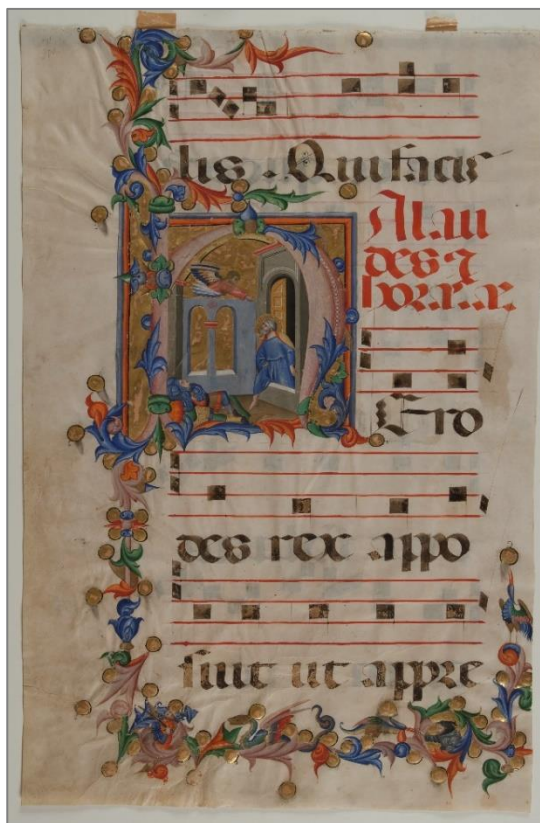 lis . Qui facis
A lau
des ⁊
HEro
des rex appo
suit ut appre